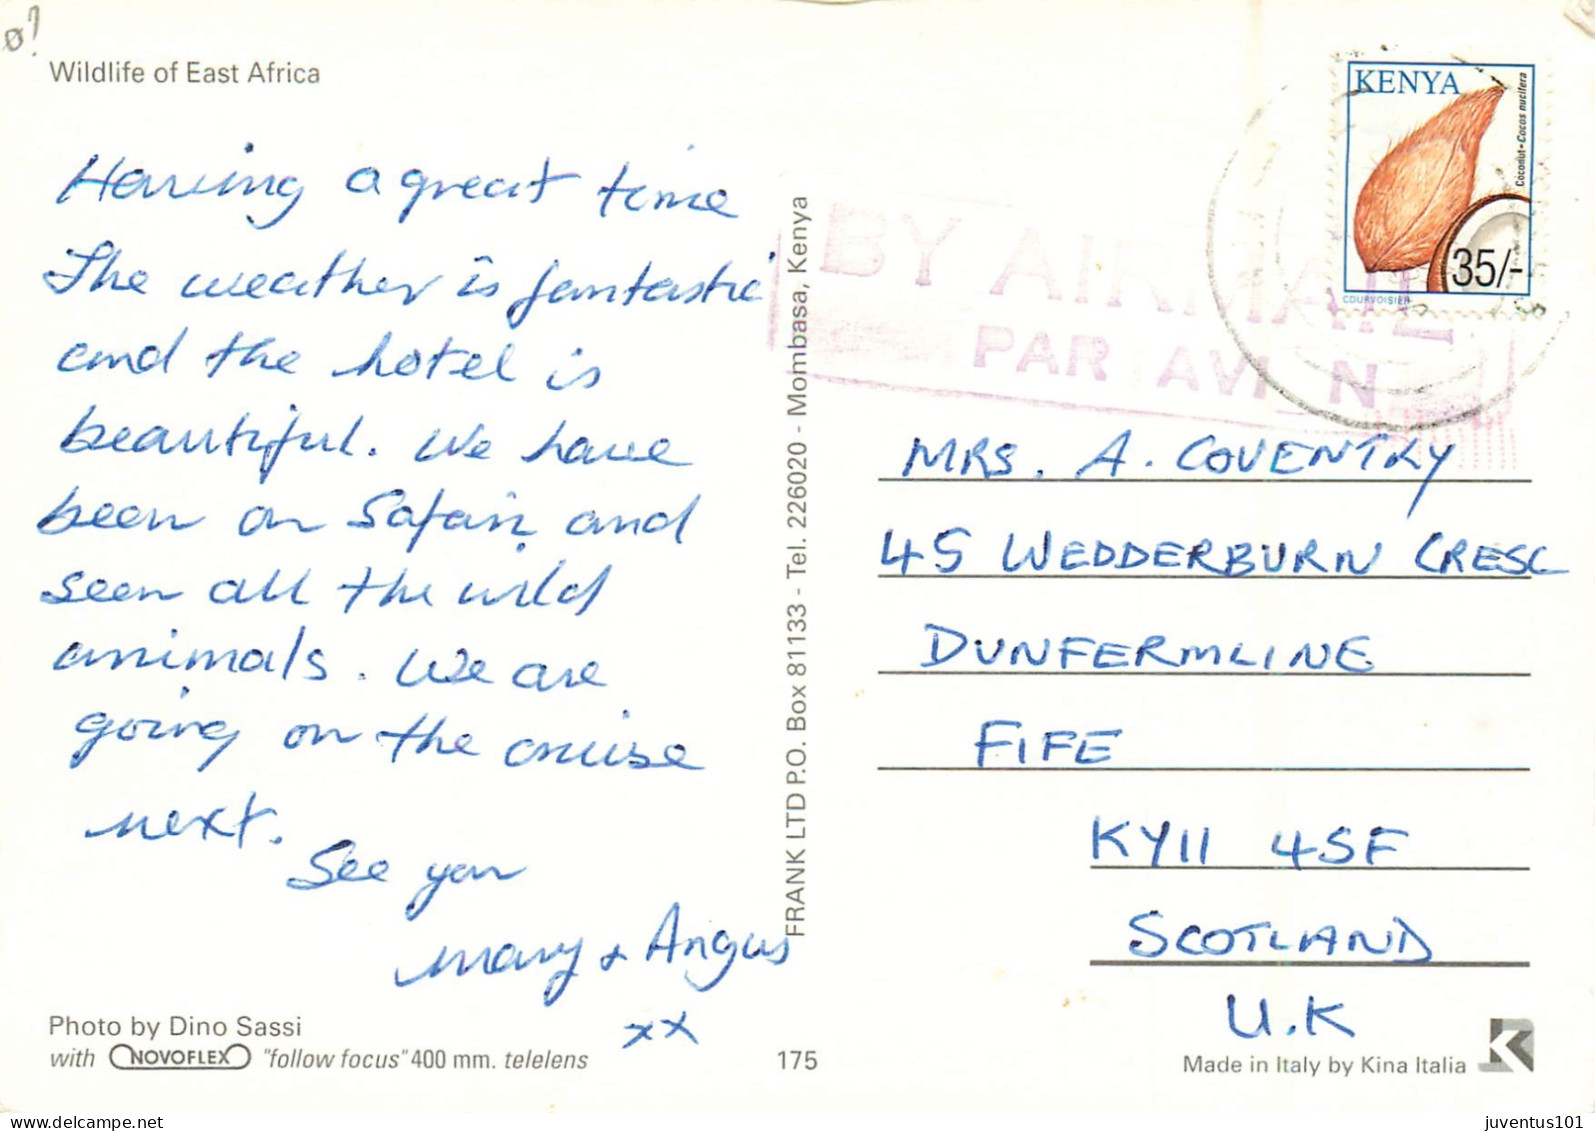 Wildlife of East Africa
Having a great time
The weather is fantastic
and the hotel is
beautiful. We have
been on Safari and
seen all the wild
animals. We are
going on the cruise
next.
See you
Mary & Angus
xx
Photo by Dino Sassi
with NOVOFLEX "follow focus" 400 mm. telelens
175
FRANK LTD P.O. Box 81133 - Tel. 226020 - Mombasa, Kenya
KENYA
Coconut - Cocos nucifera
35/-
COURVOISIER
BY AIRMAIL
PAR AVI N
MRS. A. COVENTRY
45 WEDDERBURN CRESC
DUNFERMLINE
FIFE
KY11 4SF
SCOTLAND
U.K
Made in Italy by Kina Italia
K
juventus101